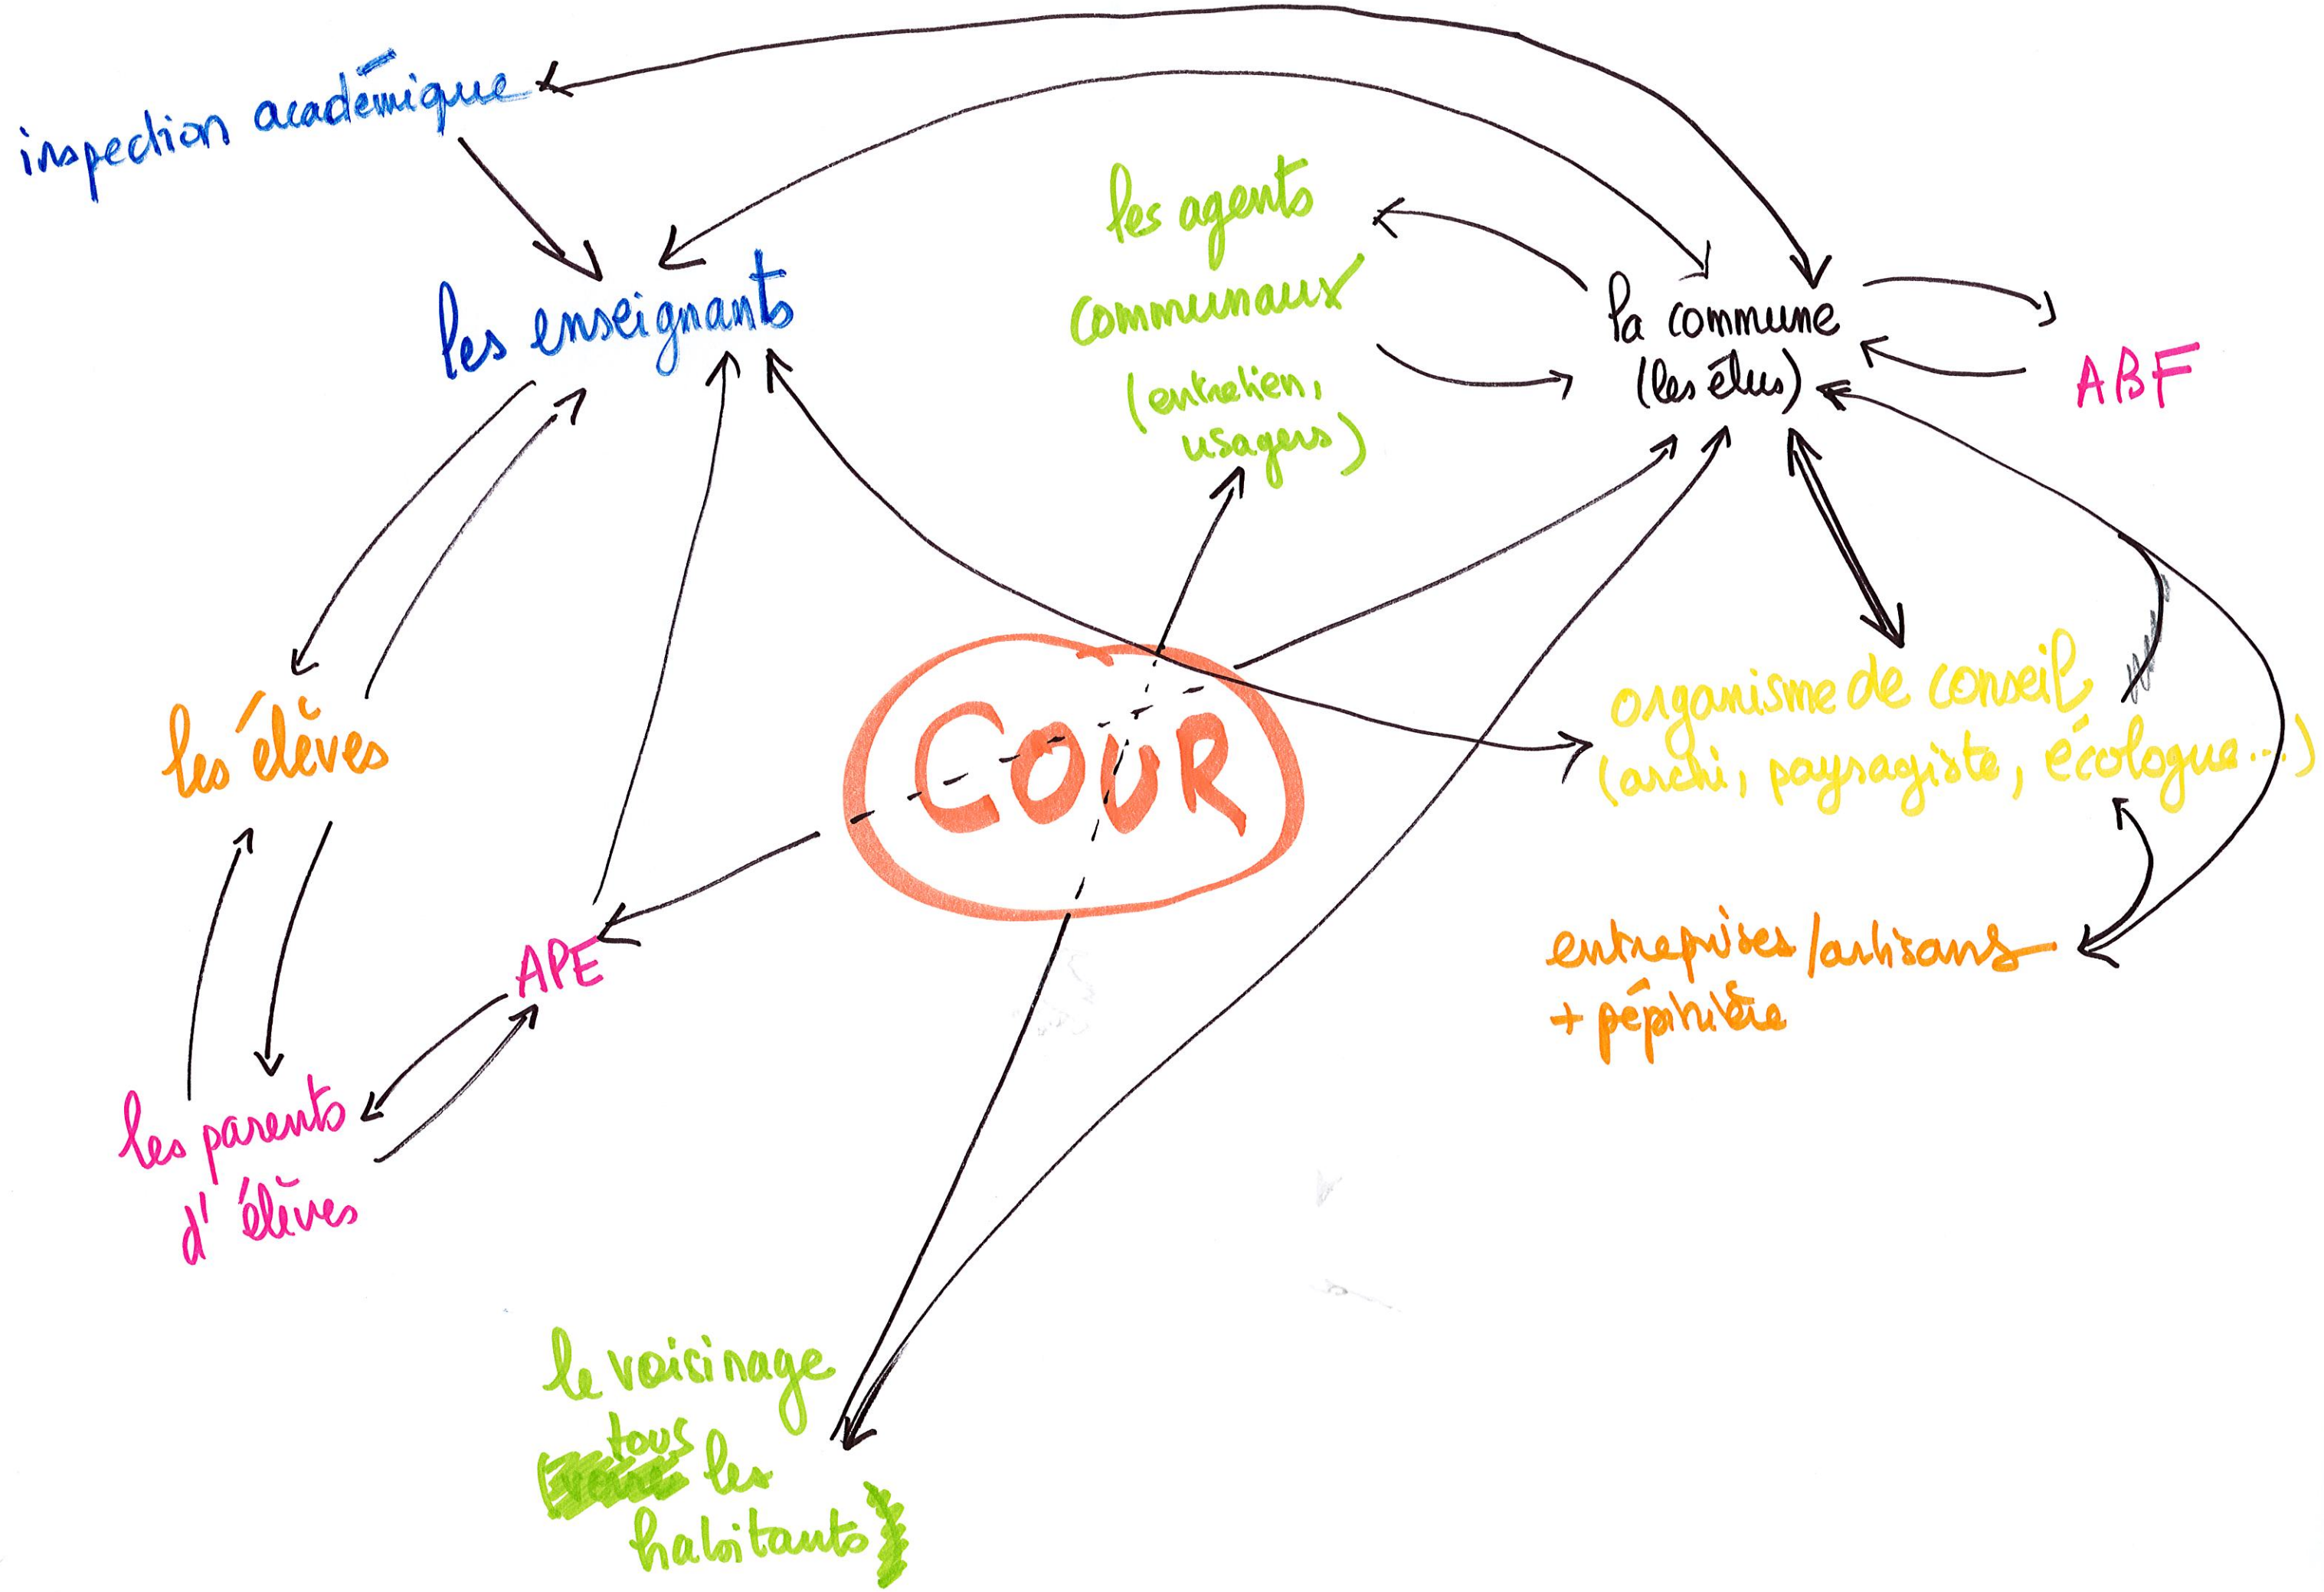 inspection académique
les enseignants
les agents
communaux
(entretien,
usagers)
la commune
(les élus)
ABF
les élèves
COUR
organisme de conseil
(archi, paysagiste, écologue...)
APE
entreprises/artisans
+ pépinière
les parents
d'élèves
le voisinage
tous
les
habitants